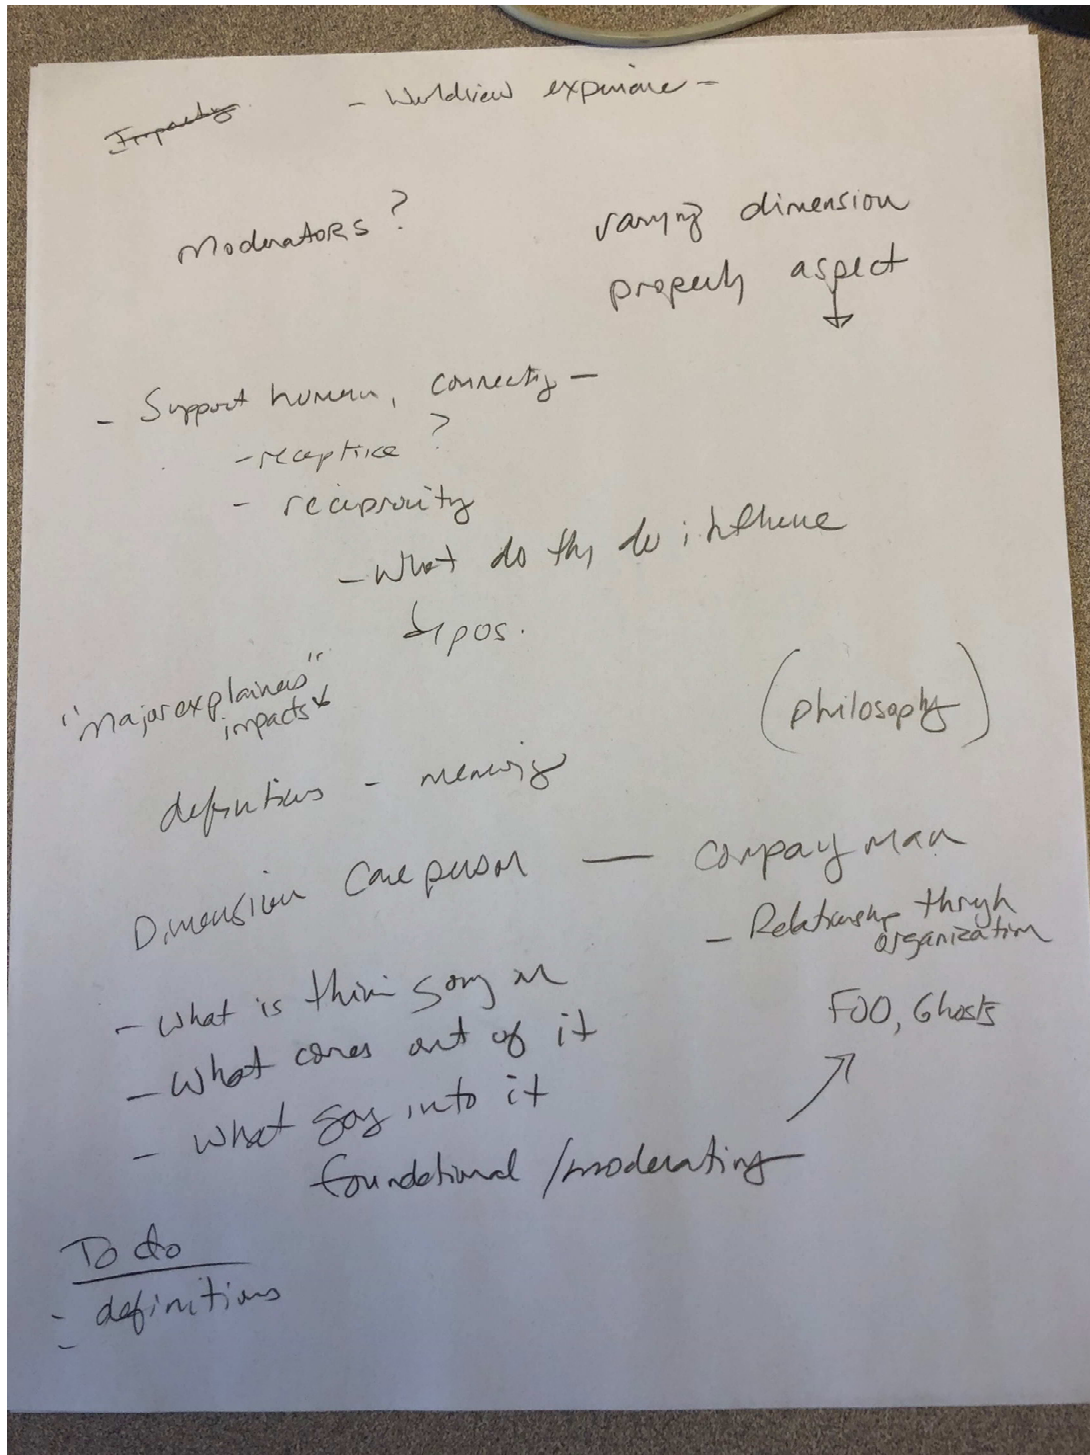 - Worldview experience -
Moderators ?
varying dimension
property aspect
- Support human, connecting -
- receptive ?
- reciprocity
- What do they do influence
pos.
"Major explainers"
impacts
(philosophy)
definitions - meaning
Dimension Care person — Company man
- Relationship through
organization
- What is this going on
- What comes out of it
- What goes into it
FOO, Ghosts
foundational / moderating
To do
- definitions
-